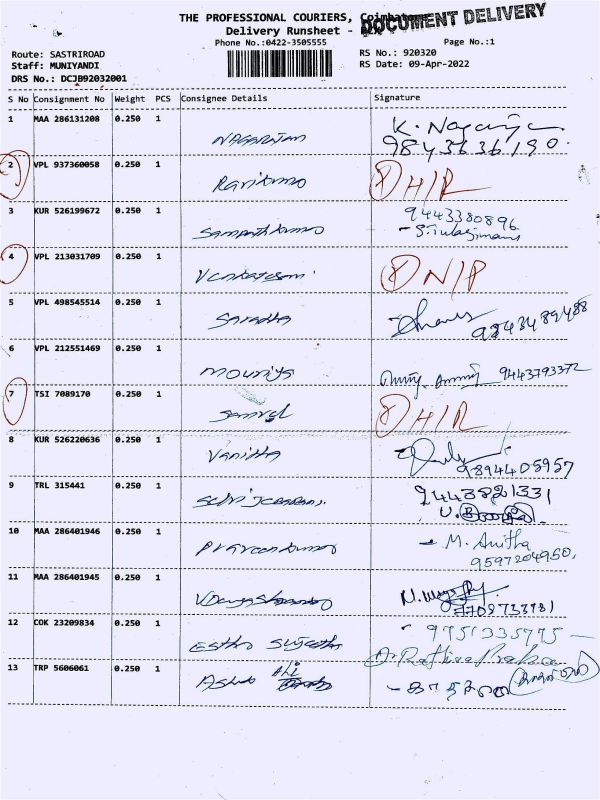 THE PROFESSIONAL COURIERS, Coimbatore
DOCUMENT DELIVERY
Delivery Runsheet -
Phone No.:0422-3505555 Page No.:1
Route: SASTRIROAD RS No.: 920320
Staff: MUNIYANDI RS Date: 09-Apr-2022
DRS No.: DCJB92032001
S No Consignment No Weight PCS Consignee Details Signature
1 MAA 286131208 0.250 1 NAGARAJAN K. Nagaraja
9843636190
2 VPL 937360058 0.250 1 Ravikumar H/R
3 KUR 526199672 0.250 1 Sampathkumar 9443380896
4 VPL 213031709 0.250 1 Venkatesan N/P
5 VPL 498545514 0.250 1 Saradha 9843489488
6 VPL 212551469 0.250 1 Mouniya 9443793372
7 TSI 7089170 0.250 1 Samuel H/R
8 KUR 526220636 0.250 1 Vanitha
9894405957
9 TRL 315441 0.250 1 9443821331
10 MAA 286401946 0.250 1 Praveenkumar M. Anitha
9597204950
11 MAA 286401945 0.250 1
7708733981
12 COK 23209834 0.250 1 Esther Sujatha 9751335775
13 TRP 5606061 0.250 1 Ali